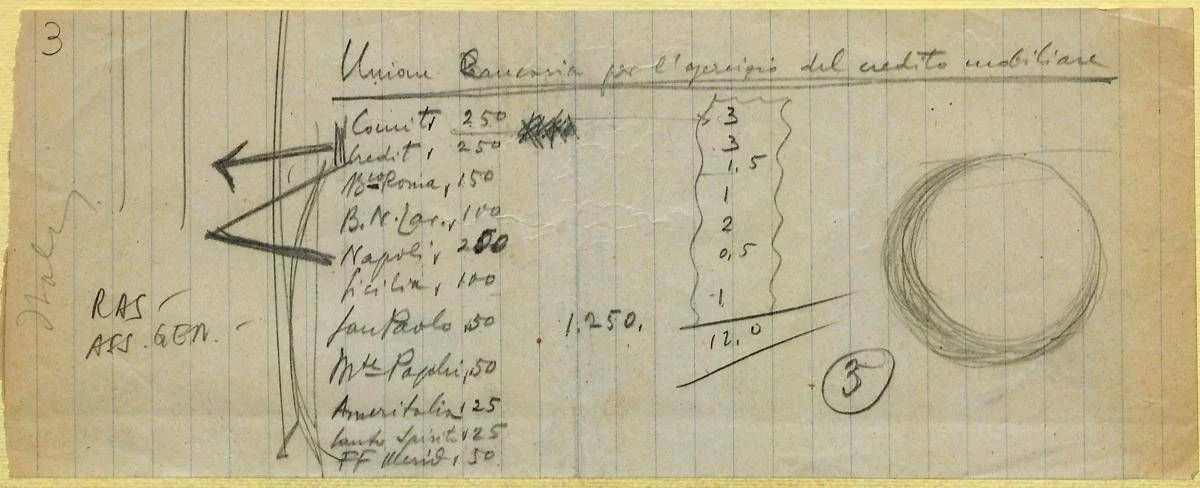 3
Unione Bancaria per l'esercizio del credito mobiliare
Comit, 250
Credit, 250
Bco Roma, 150
B.N.Lav., 100
Napoli, 200
Sicilia, 100
San Paolo, 50
Mte Paschi, 50
Ameritalia, 25
Santo Spirito, 25
FF Merid, 50
1.250.
3
3
1,5
1
2
0,5
1
12,0
3
Italy
RAS -
ASS. GEN. -